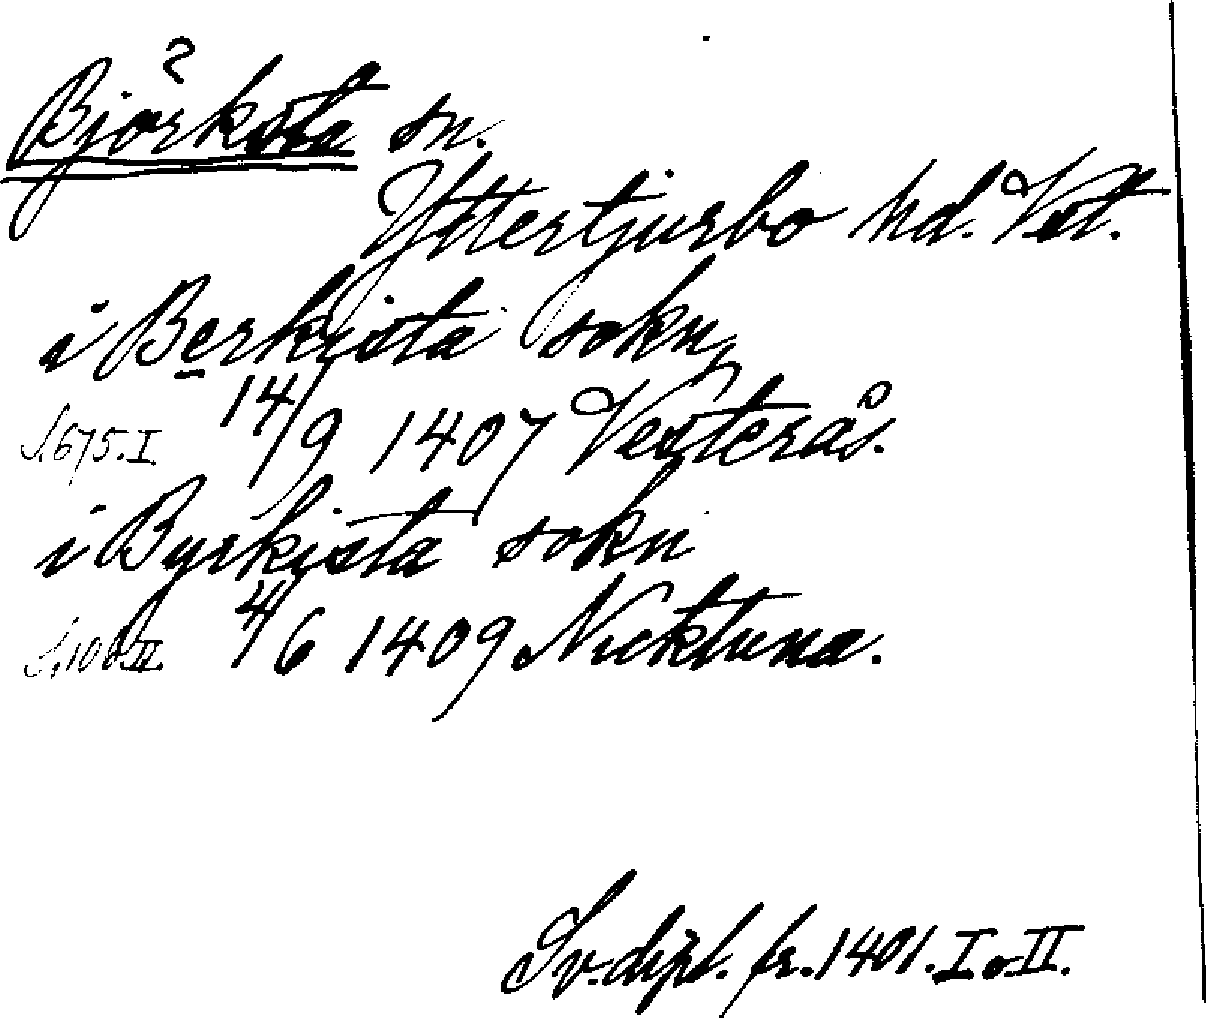 Björksta sn.
Yttertjurbo hd. Vst.
i Berkista sokn,
S. 675. I 14/9 1407 Vesterås.
i Byrkista sokn
S. 100. II. 4/6 1409 Nicktuna.
Sv. dipl. fr. 1401. I o. II.